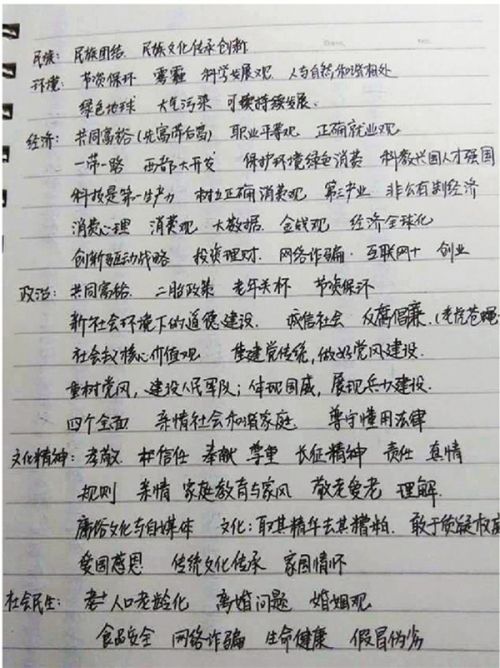 民族: 民族团结 民族文化传承创新
环境: 节资保环 雾霾 科学发展观 人与自然和谐相处
绿色地球 大气污染 可持续发展.
经济: 共同富裕(先富带后富) 职业平等观 正确就业观
一带一路 西部大开发 保护环境绿色消费 科教兴国人才强国
科技是第一生产力 树立正确消费观 第三产业 非公有制经济
消费心理 消费观 大数据 金钱观 经济全球化
创新驱动战略 投资理财. 网络诈骗. 互联网+ 创业
政治: 共同富裕. 二胎政策 老年关怀 节资保环
新社会环境下的道德建设. 诚信社会 反腐倡廉.(老虎苍蝇
社会核心价值观 重建党传统,做好党风建设.
重树党风,建设人民军队;体现国威,展现兵力建设.
四个全面 亲情社会和谐家庭 尊守懂用法律
文化精神: 孝敬 信任 奉献 尊重 长征精神 责任 真情
规则 亲情 家庭教育与家风 敬老爱老 理解.
庸俗文化与自媒体 文化:取其精华去其糟粕. 敢于质疑权威
爱国感恩 传统文化传承 家国情怀
社会民生: 人口老龄化 离婚问题 婚姻观
食品安全 网络诈骗 生命健康 假冒伪劣